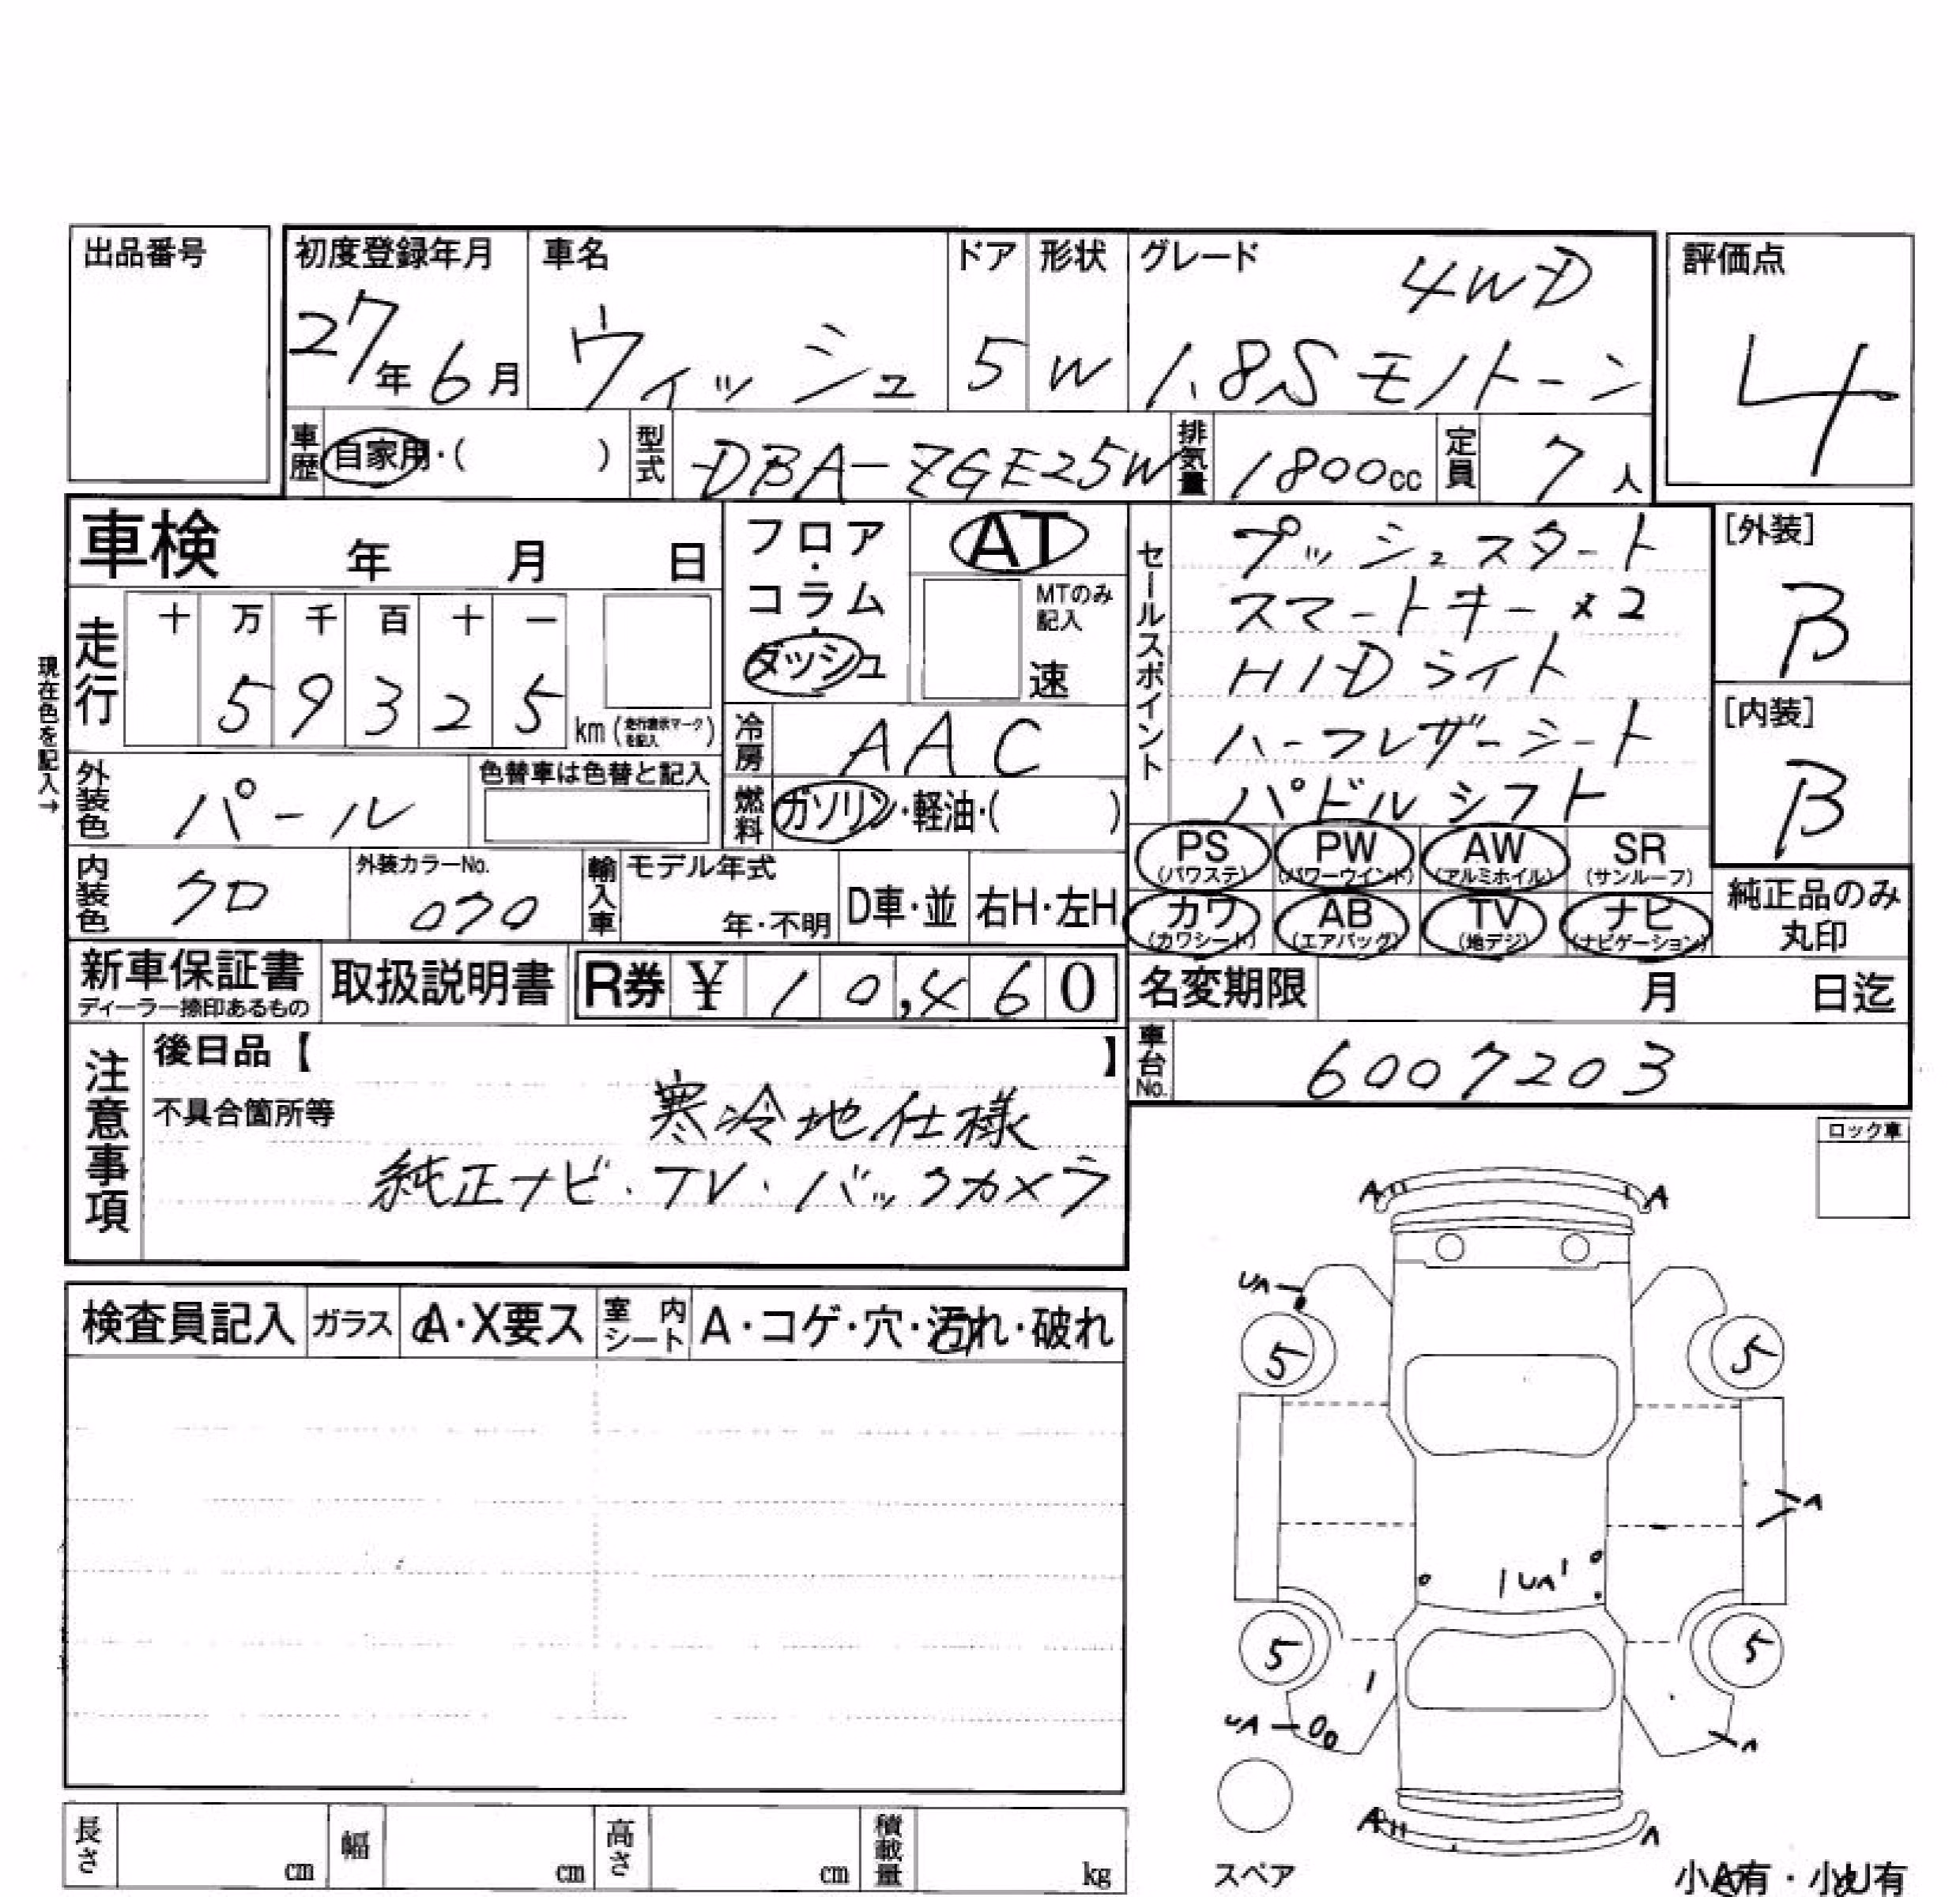 出品番号
初度登録年月
27年6月
車名
ウィッシュ
ドア
5
形状
W
グレード
4WD
1.8S モノトーン
評価点
4
車歴
自家用・( )
型式
DBA-ZGE25W
排気量
1800cc
定員
7人
車検 年 月 日
走行
十 万 千 百 十 一
5 9 3 2 5
km(走行表示マークを記入)
現在色を記入→
外装色
パール
色替車は色替と記入
内装色
クロ
外装カラーNo.
070
フロア・コラム・ダッシュ
AT
MTのみ記入
速
冷房
AAC
燃料
ガソリン・軽油・( )
輸入車
モデル年式
年・不明
D車・並
右H・左H
セールスポイント
プッシュスタート
スマートキー×2
HIDライト
ハーフレザーシート
パドルシフト
[外装]
B
[内装]
B
PS(パワステ)
PW(パワーウインド)
AW(アルミホイル)
SR(サンルーフ)
カワ(カワシート)
AB(エアバッグ)
TV(地デジ)
ナビ(ナビゲーション)
純正品のみ丸印
新車保証書
ディーラー捺印あるもの
取扱説明書
R券 ¥ 10,460
名変期限 月 日迄
車台No.
6007203
注意事項
後日品【 】
不具合箇所等
寒冷地仕様
純正ナビ・TV・バックカメラ
ロック車
検査員記入
ガラス
A・X要ス
室内シート
A・コゲ・穴・汚れ・破れ
A A
UA
5 5
A
UA
5 5
UA
A
A A
スペア
小A有・小U有
長さ cm
幅 cm
高さ cm
積載量 kg